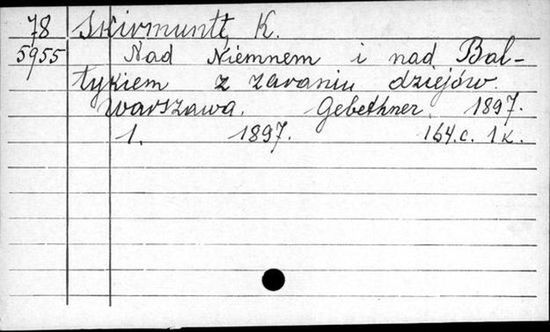 78 Skirmuntt K.
5955 Nad Niemnem i nad Bal-
tykiem z zaraniu dziejów.
Warszawa. Gebethner. 1897.
1. 1897. 164.c. 1к.